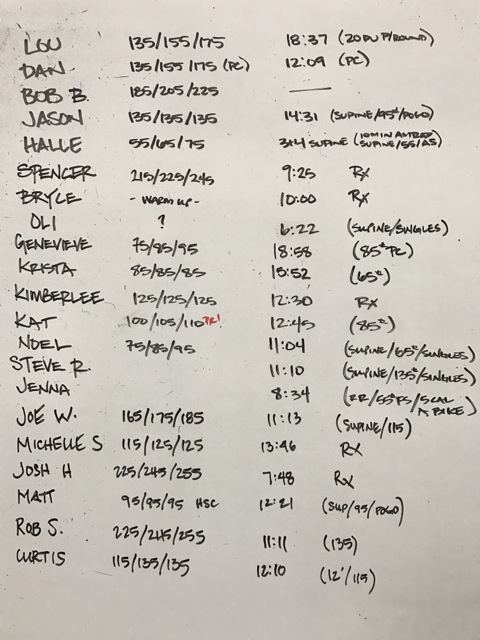 LOU 135/155/175 18:37 (20 PU P/ROUND)
DAN 135/155/175 (PC) 12:09 (PC)
BOB B. 185/205/225 —
JASON 135/135/135 14:31 (SUPINE/95#/POGO)
HALLE 55/65/75 3+4 SUPINE (10MIN AMRAP SUPINE/55/AS)
SPENCER 215/225/245 9:25 RX
BRYCE - WARM UP - 10:00 RX
OLI ? 6:22 (SUPINE/SINGLES)
GENEVIEVE 75/85/95 18:58 (85# PC)
KRISTA 85/85/85 15:52 (65#)
KIMBERLEE 125/125/125 12:30 RX
KAT 100/105/110 PR! 12:45 (85#)
NOEL 75/85/95 11:04 (SUPINE/65#/SINGLES)
STEVE R. 11:10 (SUPINE/135#/SINGLES)
JENNA 8:34 (RR/55#FS/SCAL A BIKE)
JOE W. 165/175/185 11:13 (SUPINE/115)
MICHELLE S 115/125/125 13:46 RX
JOSH H 225/245/255 7:48 RX
MATT 95/95/95 HSC 12:21 (SUP/95/POGO)
ROB S. 225/245/255 11:11 (135)
CURTIS 115/135/135 12:10 (12"/115)